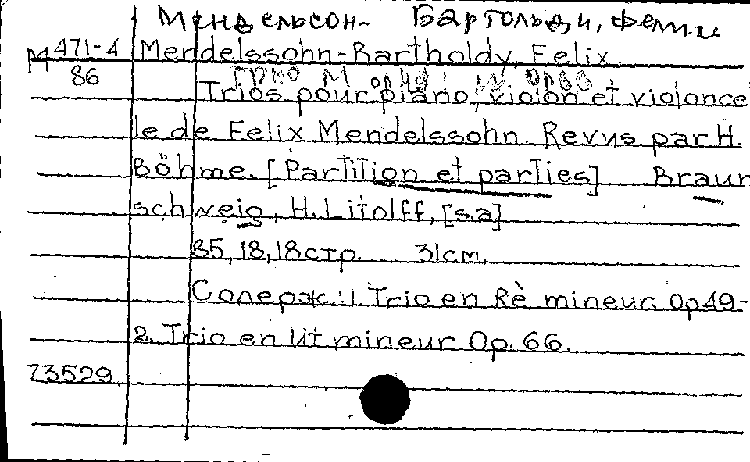 Мендельсон-Бартольди, Фелик
М 471-4 Mendelssohn-Bartholdy, Felix.
86
Trios pour piano, violon et violoncel
le de Felix Mendelssohn. Revus par H.
Böhme. [Partition et parties] Braun
schweig, H. Litolff, [s.a]
85, 18, 18 стр. 31 cm.
Содерж.: 1. Trio en Rè mineur. Op 49.-
2. Trio en Ut mineur Op. 66.
73529